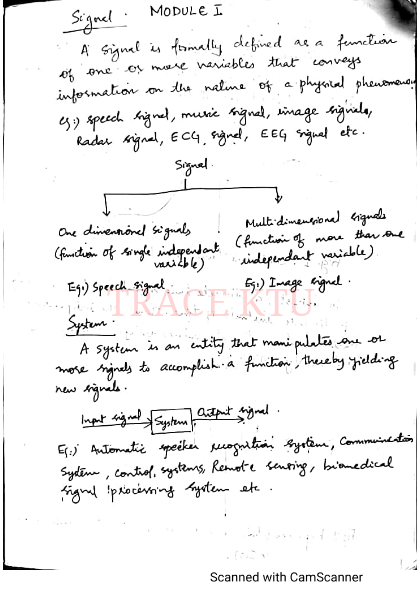 Signal. MODULE I
A signal is formally defined as a function
of one or more variables that conveys
information on the nature of a physical phenomenon
eg:) speech signal, music signal, image signals,
Radar signal, ECG signal, EEG signal etc.
Signal.
One dimensional signals
(function of single independant
variable)
Eg:) Speech signal.
Multidimensional signals
(function of more than one
independant variable)
Eg:) Image signal.
TRACE KTU
System.
A system is an entity that manipulates one or
more signals to accomplish a function, thereby yielding
new signals.
Input signal System Output signal.
Eg:) Automatic speaker recognition system, Communication
system, control systems, Remote sensing, biomedical
signal processing system etc.
Scanned with CamScanner